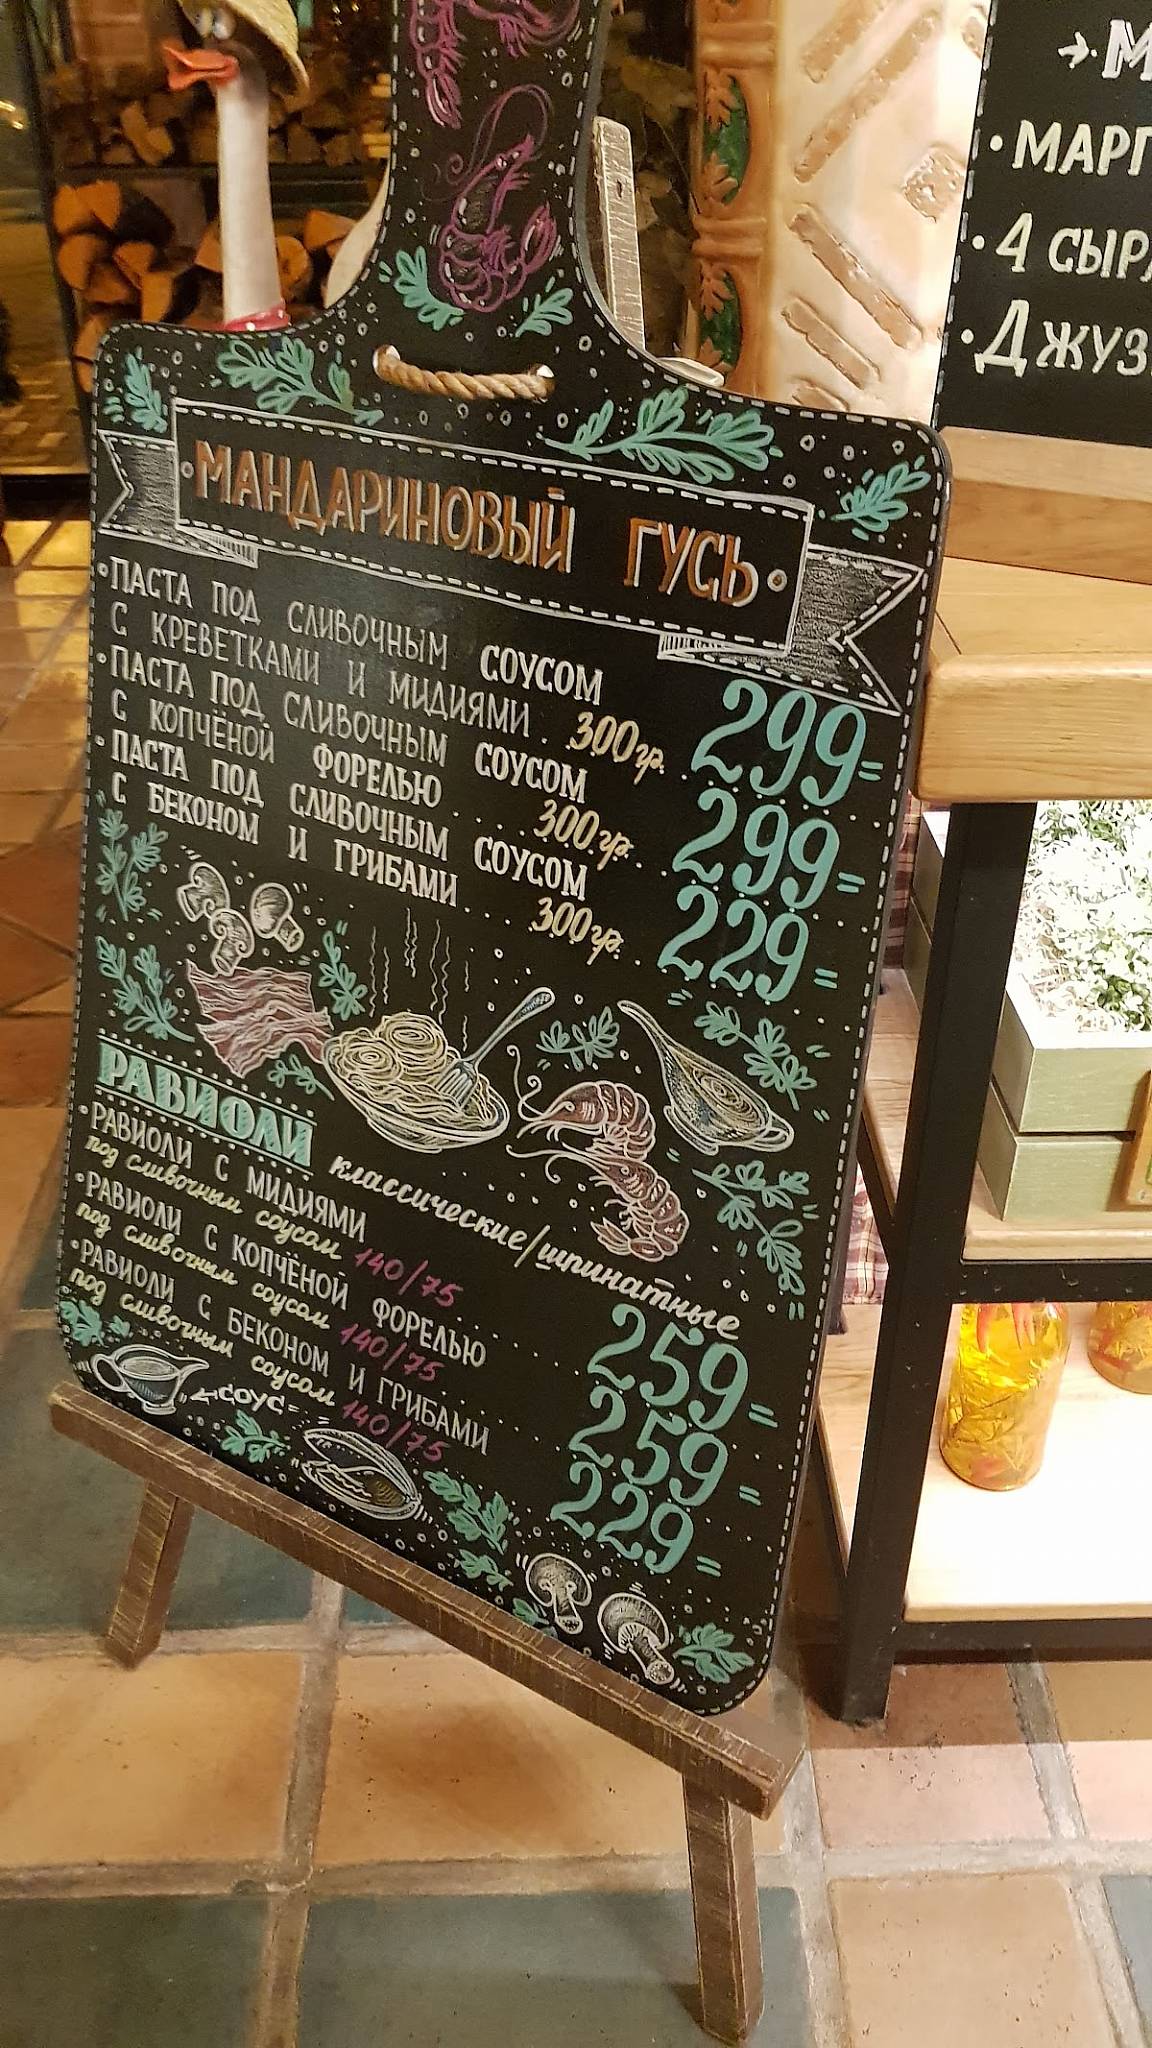 МАНДАРИНОВЫЙ ГУСЬ
•ПАСТА ПОД СЛИВОЧНЫМ СОУСОМ
С КРЕВЕТКАМИ И МИДИЯМИ. 300гр... 299=
•ПАСТА ПОД СЛИВОЧНЫМ СОУСОМ
С КОПЧЁНОЙ ФОРЕЛЬЮ...... 300гр... 299=
•ПАСТА ПОД СЛИВОЧНЫМ СОУСОМ
С БЕКОНОМ И ГРИБАМИ.... 300гр... 229=
РАВИОЛИ классические/шпинатные
•РАВИОЛИ С МИДИЯМИ
под сливочным соусом 140/75 259=
•РАВИОЛИ С КОПЧЁНОЙ ФОРЕЛЬЮ
под сливочным соусом 140/75 259=
•РАВИОЛИ С БЕКОНОМ И ГРИБАМИ
под сливочным соусом 140/75 229=
←СОУС=
→ М
•МАРГ
•4 СЫР
•ДЖУЗ